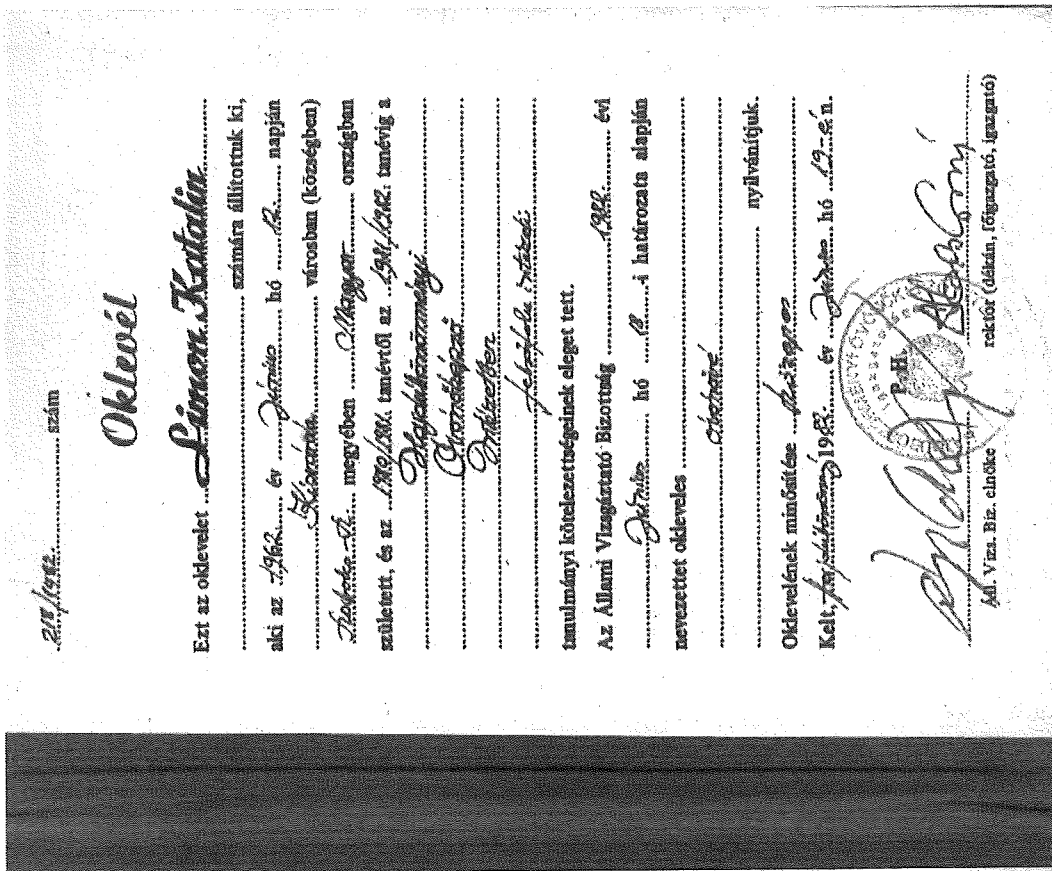 218/1982. szám
Oklevél
Ezt az oklevelet Simon Katalin
számára állítottuk ki,
aki az 1962 év Június hó 12. napján
Kisvárda városban (községben)
Szabolcs-Sz. megyében Magyar országban
született, és az 1980/1981. tanévtől az 1981/1982. tanévig a
Hajdúböszörményi
Óvónőképző
Intézetben
felsőfokú intézeti
tanulmányi kötelezettségeinek eleget tett.
Az Állami Vizsgáztató Bizottság 1982. évi
Június hó i határozata alapján
nevezettet okleveles
óvónővé
nyilvánítjuk.
Oklevelének minősítése
Kelt, Hajdúböszörmény 198 év Június hó 19-én.
P. H.
Áll. Vizs. Biz. elnöke rektor (dékán, főigazgató, igazgató)